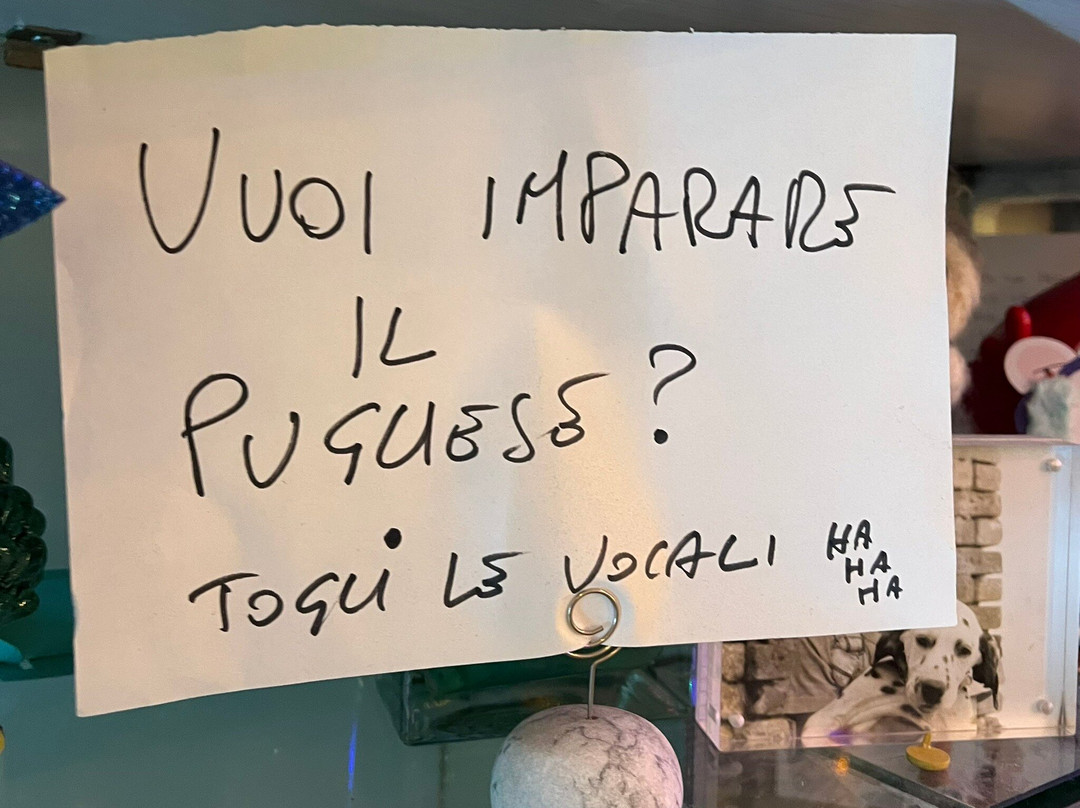 VUOI IMPARARE
IL
PUGLIESE?
TOGLI LE VOCALI HA
HA
HA